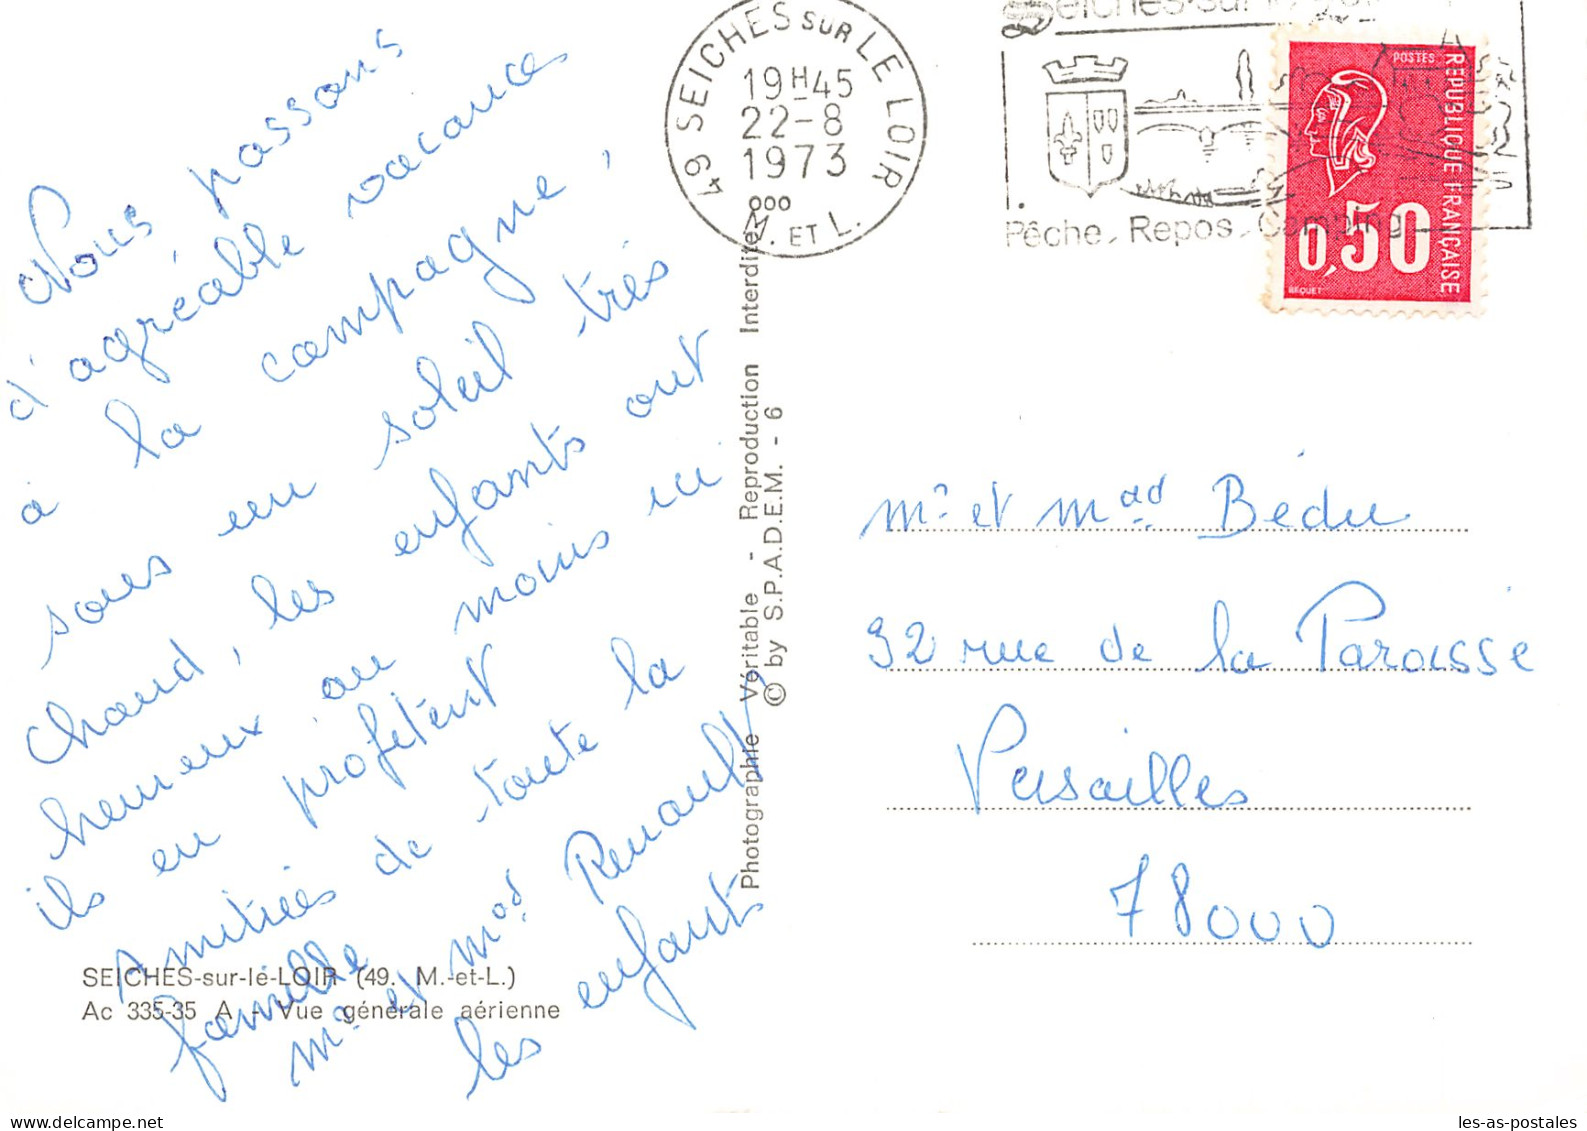 Nous passons
d'agréable vacances
à la campagne,
sous un soleil très
chaud, les enfants ont
heureux au moins ici
ils en profitent
Amitiés de toute la
famille
Mr et Mad Renault,
les enfants
SEICHES-sur-le-LOIR (49. M.-et-L.)
Ac 335-35 A - Vue générale aérienne
Photographie Véritable - Reproduction Interdite
© by S.P.A.D.E.M. - 6
49 SEICHES SUR LE LOIR
19H45
22-8
1973
M. ET L.
Seiches-sur-le-Loir
Pêche, Repos, Camping
POSTES
REPUBLIQUE FRANÇAISE
0,50
BEQUET
Mr et Mad Bédu
32 rue de la Paroisse
Versailles
78000
les-as-postales